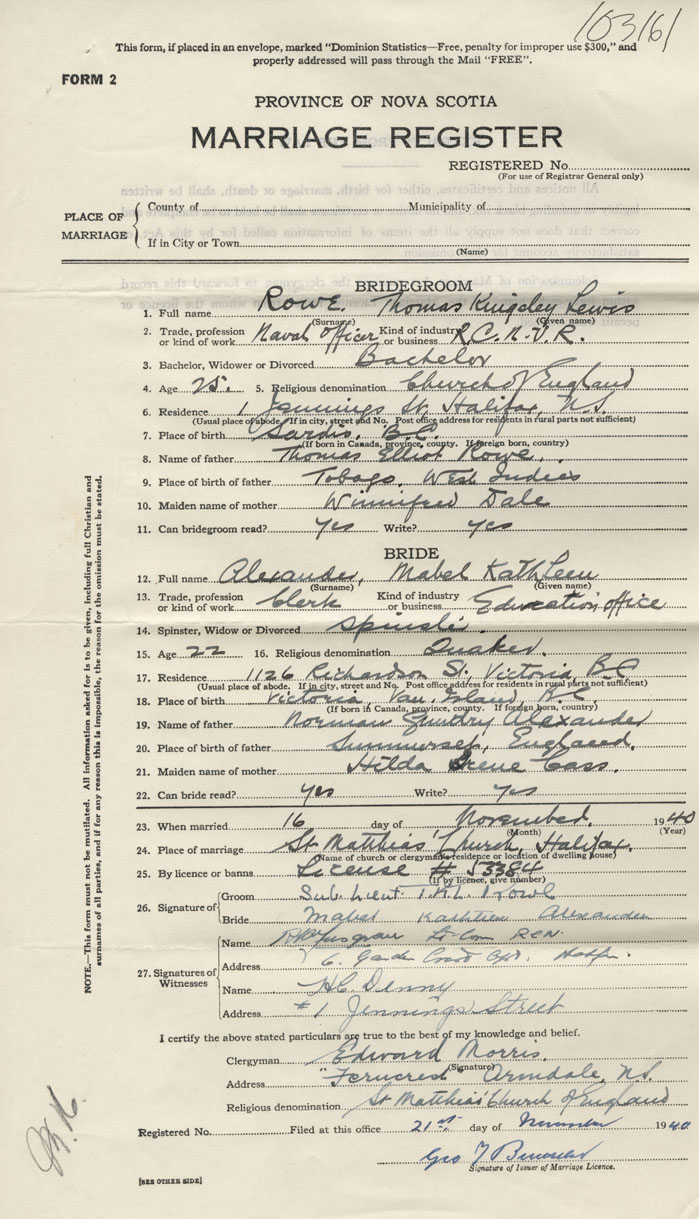 103161
This form, if placed in an envelope, marked "Dominion Statistics—Free, penalty for improper use $300," and
properly addressed will pass through the Mail "FREE".
FORM 2
PROVINCE OF NOVA SCOTIA
MARRIAGE REGISTER
REGISTERED No.
(For use of Registrar General only)
PLACE OF MARRIAGE
County of Municipality of
If in City or Town
(Name)
BRIDEGROOM
1. Full name Rowe. Thomas Kingsley Lewis
(Surname) (Given name)
2. Trade, profession or kind of work Naval Officer Kind of industry or business R.C.N.V.R.
3. Bachelor, Widower or Divorced Bachelor
4. Age 25. 5. Religious denomination Church of England
6. Residence 1 Jennings St, Halifax, N.S.
(Usual place of abode. If in city, street and No. Post office address for residents in rural parts not sufficient)
7. Place of birth Sardis. B.C.
(If born in Canada, province, county. If foreign born, country)
8. Name of father Thomas Elliot Rowe.
9. Place of birth of father Tobago. West Indies
10. Maiden name of mother Winnifred Dale
11. Can bridegroom read? Yes Write? Yes
BRIDE
12. Full name Alexander, Mabel Kathleen
(Surname) (Given name)
13. Trade, profession or kind of work Clerk Kind of industry or business Education office
14. Spinster, Widow or Divorced
15. Age 22 16. Religious denomination Quaker.
17. Residence 1126 Richardson St, Victoria, B.C
(Usual place of abode. If in city, street and No. Post office address for residents in rural parts not sufficient)
18. Place of birth Victoria, Van. Island, B.C
(If born in Canada, province, county. If foreign born, country)
19. Name of father Norman Alexander
20. Place of birth of father Summerset, England.
21. Maiden name of mother Hilda Irene Cass.
22. Can bride read? Yes Write? Yes
23. When married 16 day of November. 1940
(Month) (Year)
24. Place of marriage St Matthias Church, Halifax.
(Name of church or clergyman's residence or location of dwelling house)
25. By licence or banns License # 53384
(If by licence, give number)
26. Signature of
Groom Sub. Lieut. T.K.L. Rowe
Bride Mabel Kathleen Alexander
27. Signatures of Witnesses
Name Lt Com RCN.
Address 6. Garden Apt.
Name H.C. Denny
Address #1 Jennings Street
I certify the above stated particulars are true to the best of my knowledge and belief.
Clergyman Edward Morris.
(Signature)
Address "Ferncrest" Armdale, N.S.
Religious denomination St Matthias' Church of England
Registered No. Filed at this office 21st day of November 1940
Geo
Signature of Issuer of Marriage Licence.
[SEE OTHER SIDE]
NOTE.—This form must not be mutilated. All information asked for is to be given, including full Christian and
surnames of all parties, and if for any reason this is impossible, the reason for the omission must be stated.